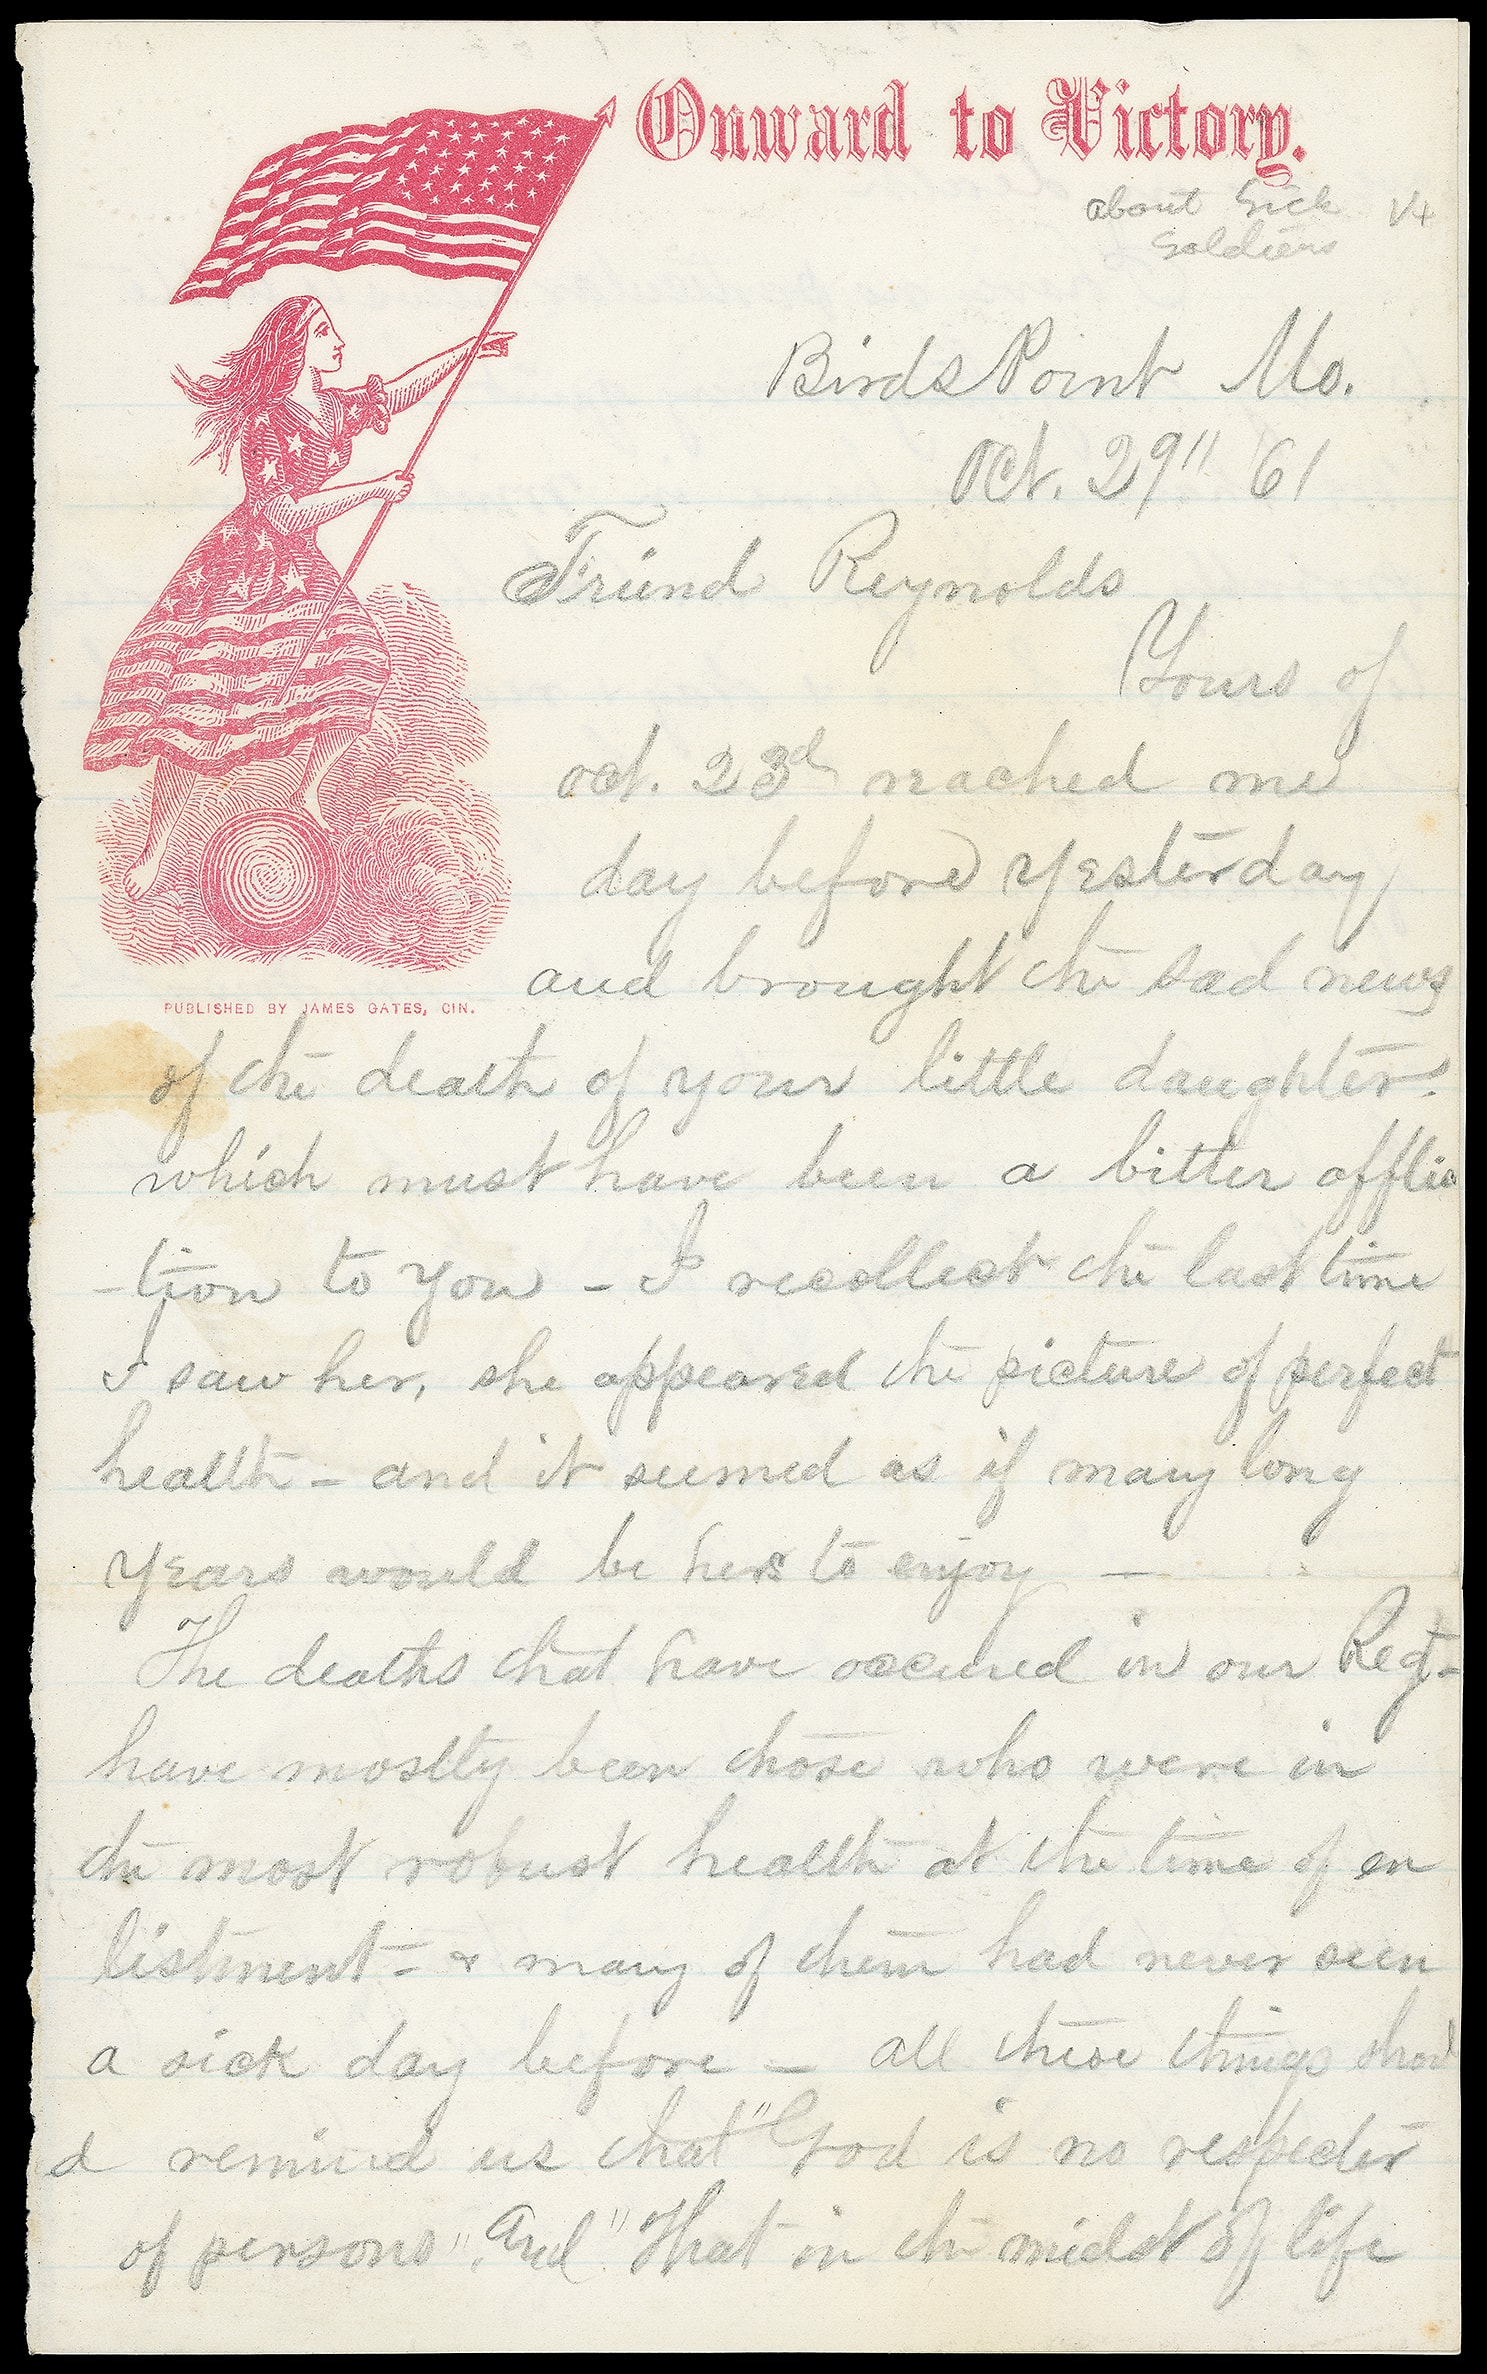 Onward to Victory.
about Sick V4
Soldiers
Birds Point Mo.
Oct. 29" 61
Friend Reynolds
Yours of
oct. 23d reached me
day before yesterday
and brought the sad news
PUBLISHED BY JAMES GATES, CIN.
of the death of your little daughter.
which must have been a bitter afflic
-tion to you - I recollect the last time
I saw her, she appeared the picture of perfect
health - and it seemed as if many long
years would be hers to enjoy —
The deaths that have occured in our Regt-
have mostly been those who were in
the most robust health at the time of en
listment - & many of them had never seen
a sick day before - all these things shoul
d remind us that "God is no respecter
of persons". And "That in the midst of life